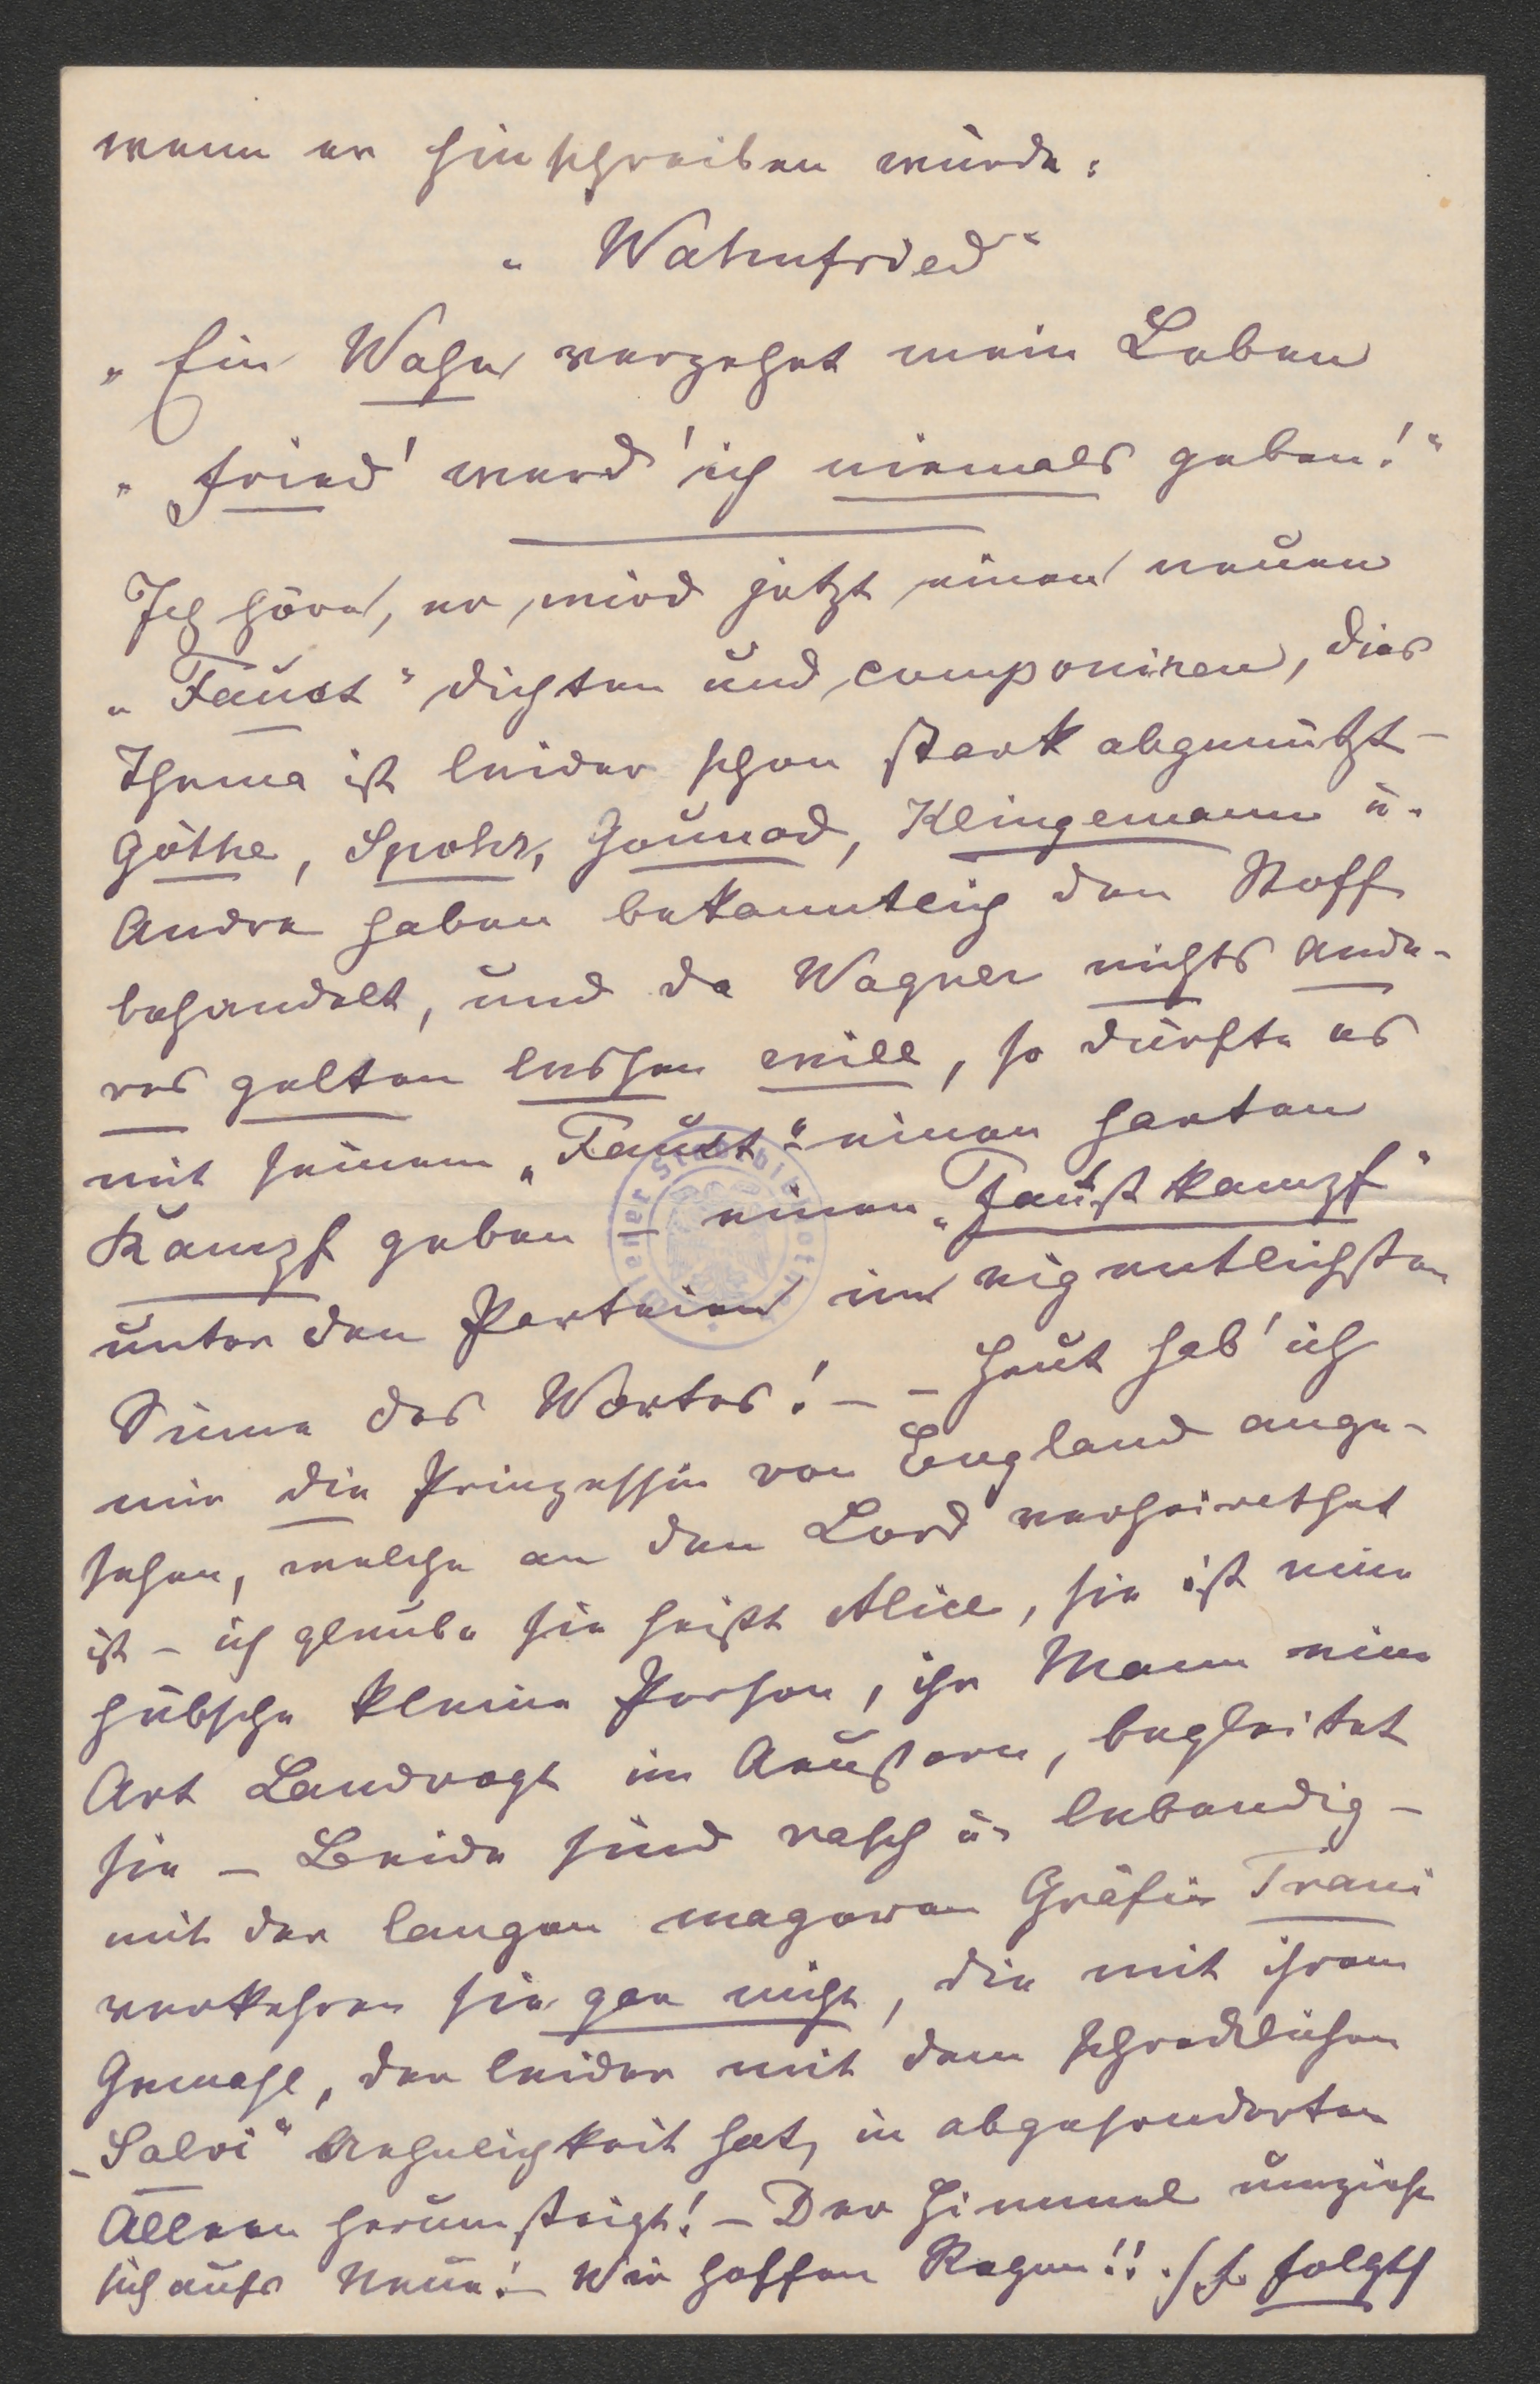 wenn er hinschreiben würde:
„Wahnfried“
„Ein Wahn verzehrt mein Leben
„Fried' werd' ich niemals geben!“
Ich höre, er wird jetzt einen neuen
„Faust“ dichten und componiren, dies
Thema ist leider schon stark abgenützt –
Göthe, Spohr, Gounod, Klingemann u.
Andre haben bekanntlich den Stoff
behandelt, und da Wagner nichts ande-
res gelten lassen will, so dürfte es
mit seinem „Faust“ einen harten
Kampf geben – einen „Faustkampf“
unter den Parteien im eigentlichsten
Sinne des Wortes! – – Heut hab' ich
mir die Prinzessin von England ange-
sehen, welche an den Lord verheirathet
ist – ich glaube sie heißt Alice, sie ist eine
hübsche kleine Person, ihr Mann eine
Art Landvogt im Aeußern, begleitet
sie – Beide sind rasch u. lebendig –
mit der langen mageren Gräfin Trani
verkehren sie gar nicht, die mit ihrem
Gemahl, der leider mit dem schrecklichen
„Salvi“ Aehnlichkeit hat, in abgesonderten
Alleen herumsteigt! – Der Himmel umzieht
sich aufs Neue! – Wir hoffen Regen!! ./. f. folgt